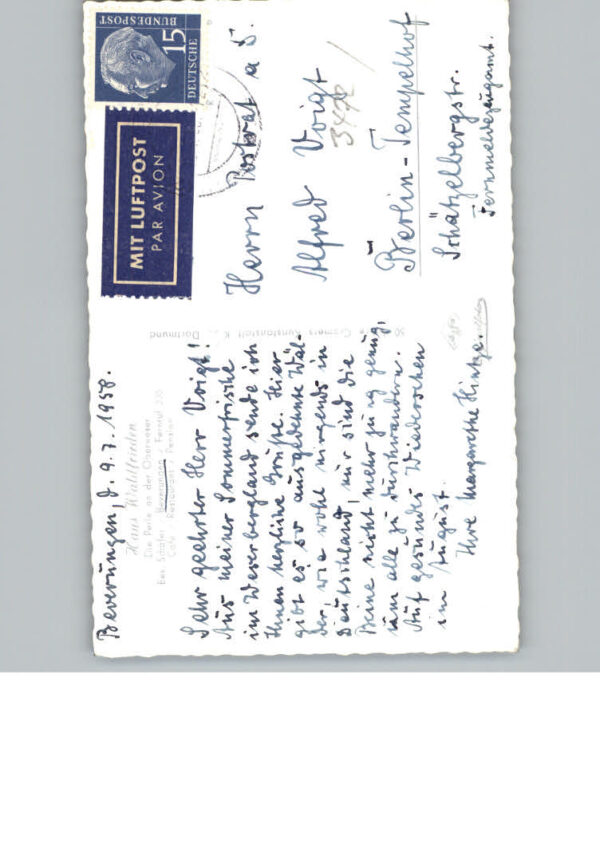 Beverungen, d. 9.7.1958.
Haus Waldfrieden
Die Perle an der Oberweser
Bes. Schäfer / Beverungen / Fernruf 335
Café / Restaurant / Pension
Sehr geehrter Herr Voigt!
Aus meiner Sommerfrische
im Weserbergland sende ich
Ihnen herzliche Grüße. Hier
gibt es so ausgedehnte Wäl-
der, wie wohl nirgends in
Deutschland, nur sind die
Beine nicht mehr jung genug,
um alle zu durchwandern.
Auf gesundes Wiedersehen
im August.
Ihre Margarethe Hintze.
Cramers Kunstanstalt K., Dortmund
MIT LUFTPOST
PAR AVION
DEUTSCHE
BUNDESPOST
15
Herrn Postrat a D.
Alfred Voigt
Berlin-Tempelhof
Schätzelbergstr.
Fernmeldezeugamt.